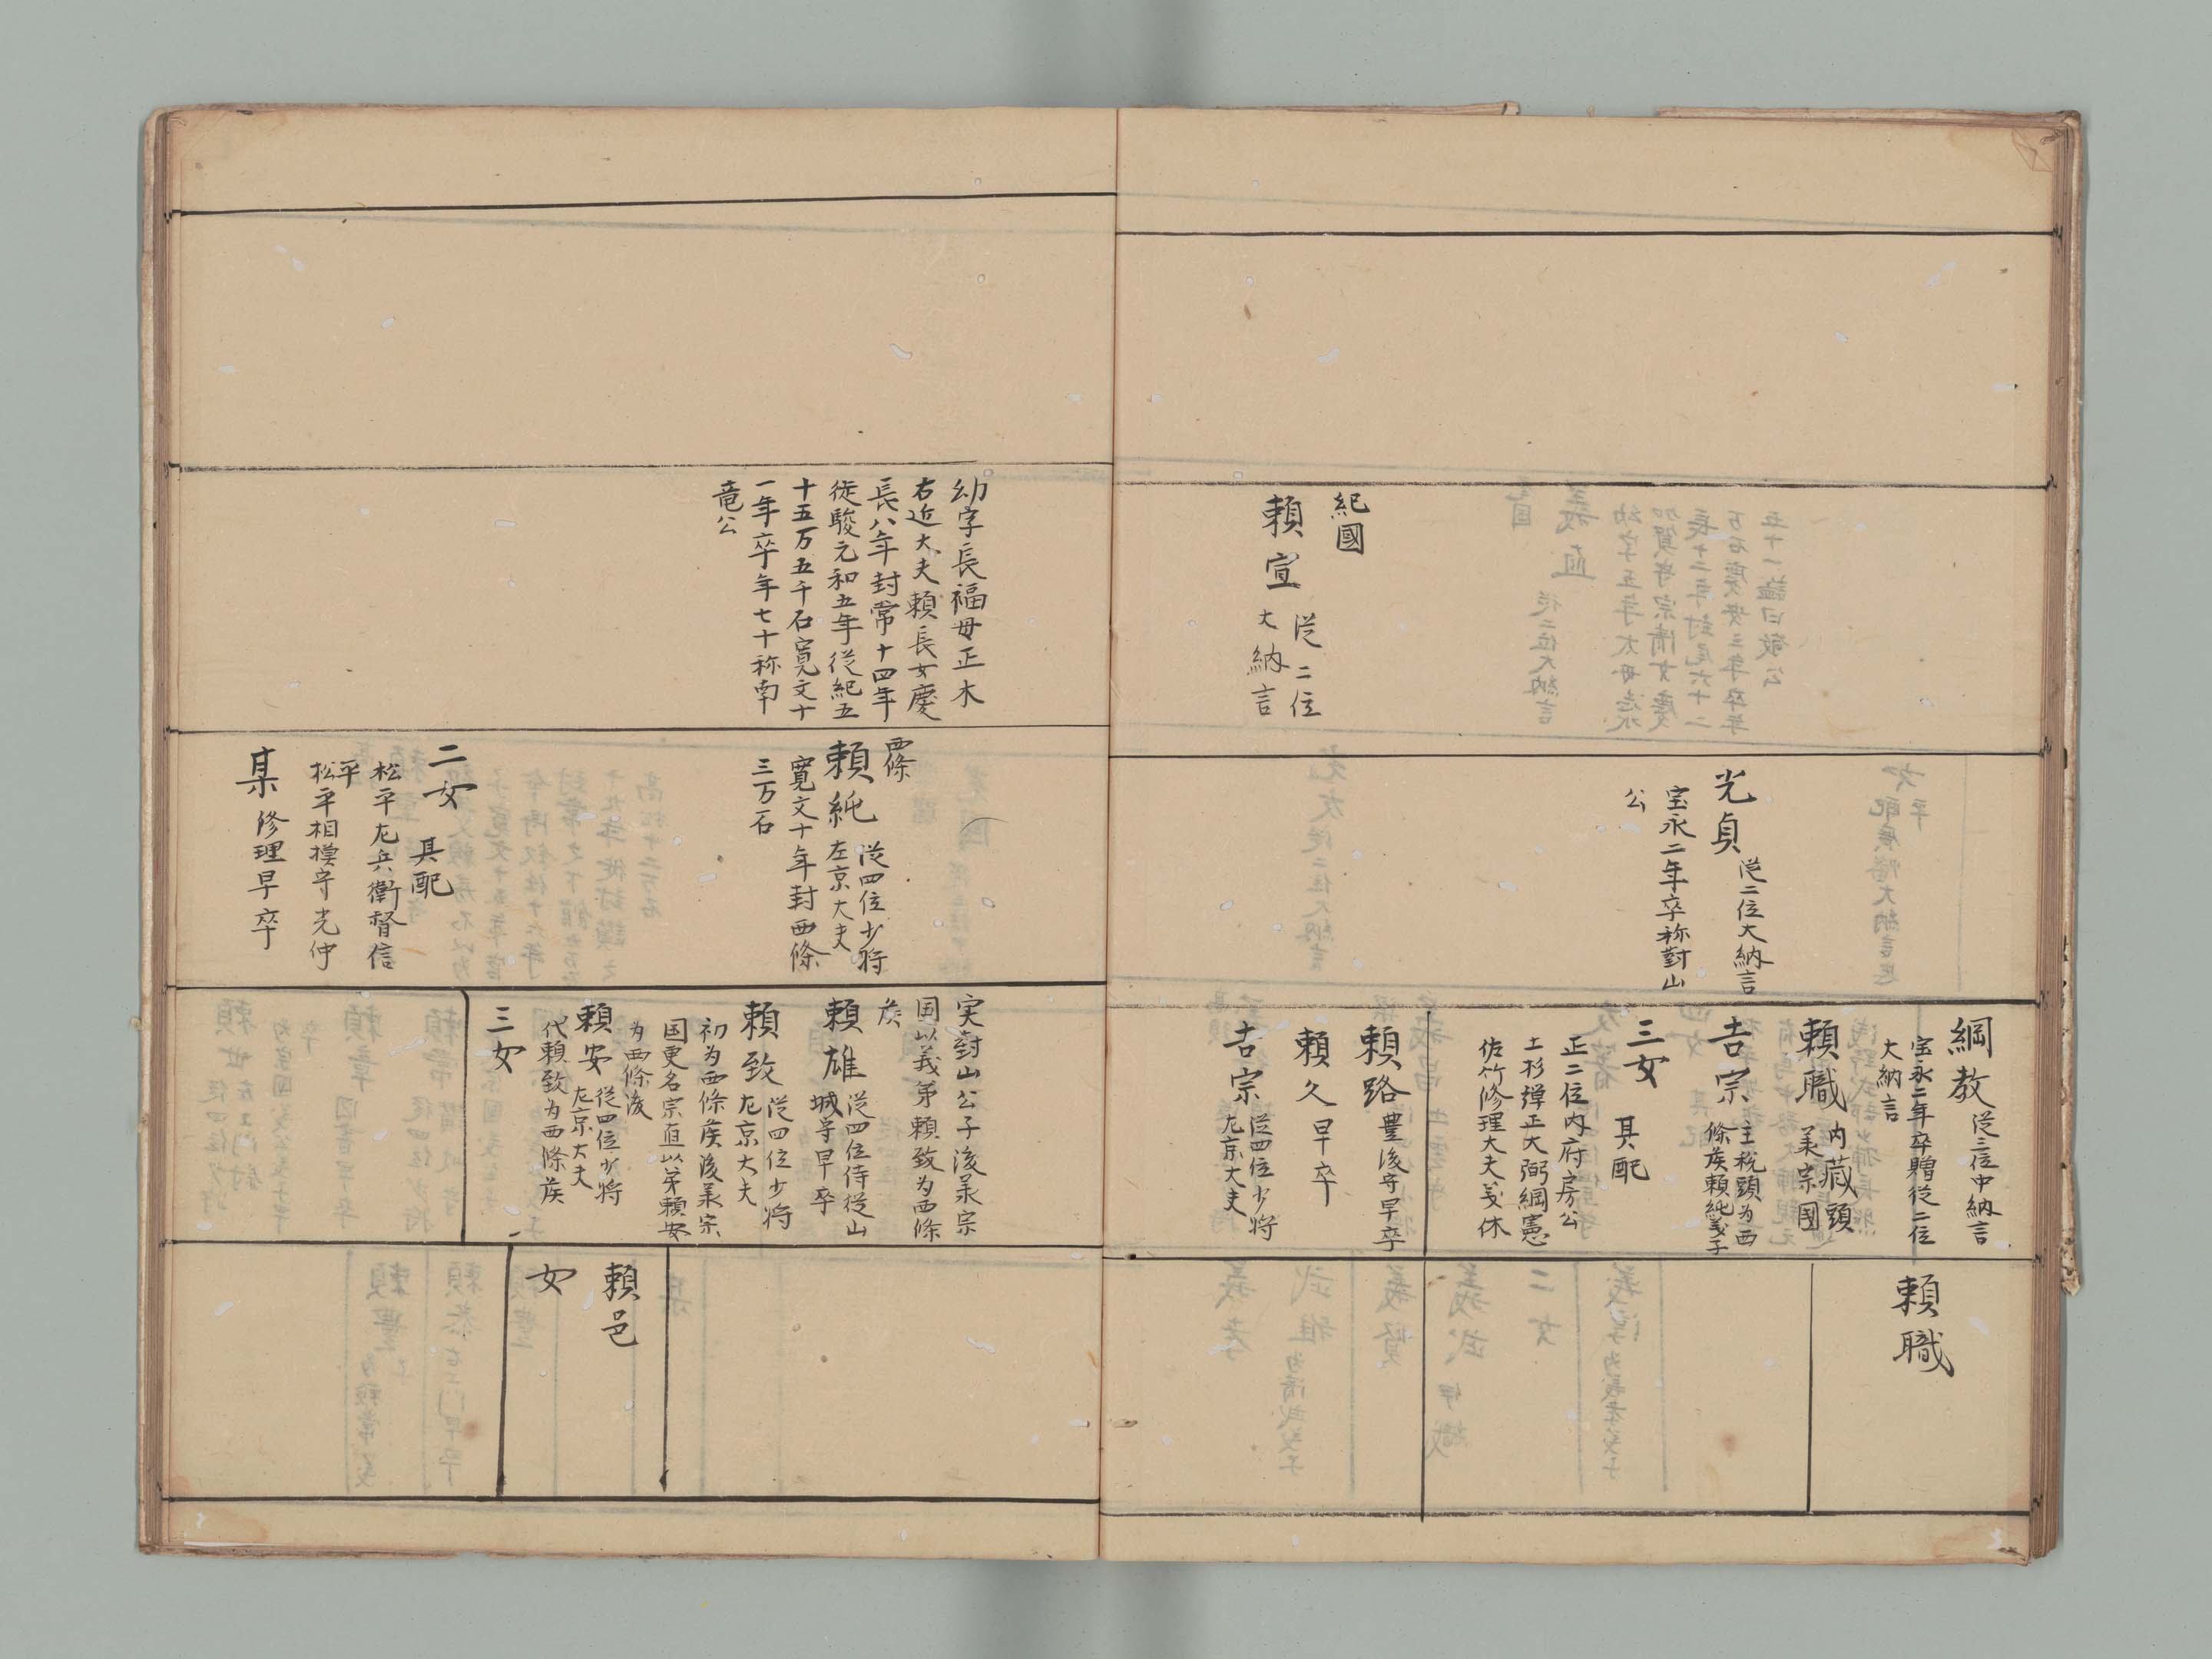 紀國
頼宣
従二位
大納言
光貞
従二位大納言
宝永二年卒称對山
公
綱教
従三位中納言
宝永二年卒贈従二位
大納言
頼職
内蔵頭
美宗國
吉宗
主税頭为西
條矦頼純義子
三女
其配
正二位内府房公
土杉弾正大弼綱憲
佐竹修理大夫义休
頼路
豊後守早卒
頼久早卒
吉宗
従四位少将
左京大夫
頼職
幼字長福母正木
右近大夫頼長女慶
長八年封常十四年
徙駿元和五年従紀五
十五万五千石寛文十
一年卒年七十称南
竜公
西條
頼純
従四位少将
左京大夫
寛文十年封西條
三万石
二女
其配
松平左兵衛督信
平
松平相模守光仲
某
修理早卒
実對山公子後承宗
国以義弟頼致为西條
矦
頼雄
従四位侍従山
城守早卒
頼致
従四位少将
左京大夫
初为西條矦後承宗
国更名宗直以弟頼安
为西條後
頼安
従四位少将
左京大夫
代頼致为西條矦
三女
頼邑
女